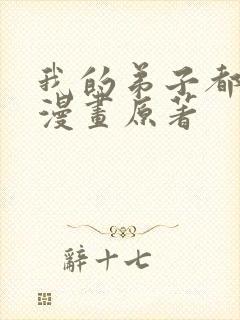 我的弟子都
漫畫原著
辭十七